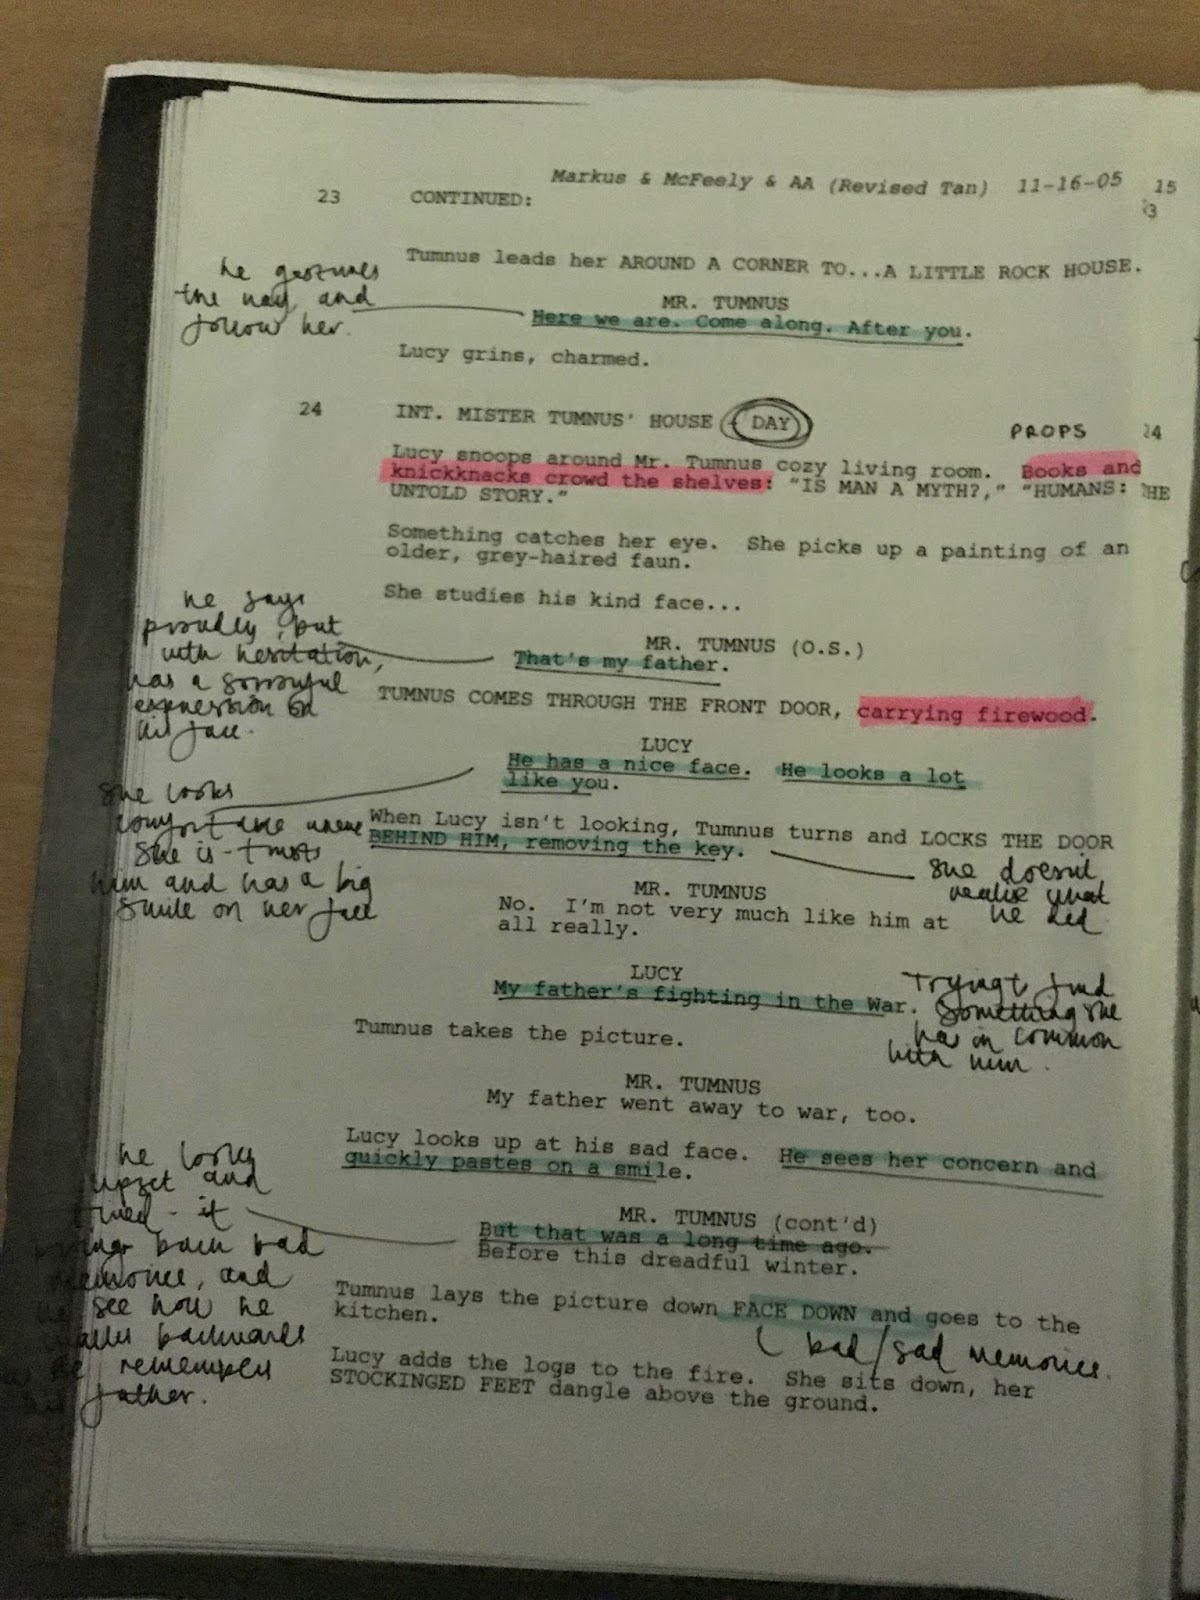 Markus & McFeely & AA (Revised Tan) 11-16-05 15
23 CONTINUED: 3
Tumnus leads her AROUND A CORNER TO...A LITTLE ROCK HOUSE.
he gestures
the way and
follow her.
MR. TUMNUS
Here we are. Come along. After you.
Lucy grins, charmed.
24 INT. MISTER TUMNUS' HOUSE - DAY 24
PROPS
Lucy snoops around Mr. Tumnus cozy living room. Books and
knickknacks crowd the shelves: "IS MAN A MYTH?," "HUMANS: THE
UNTOLD STORY."
Something catches her eye. She picks up a painting of an
older, grey-haired faun.
She studies his kind face...
he says
proudly, but
with hesitation,
has a sorrowful
expression on
his face.
MR. TUMNUS (O.S.)
That's my father.
TUMNUS COMES THROUGH THE FRONT DOOR, carrying firewood.
LUCY
He has a nice face. He looks a lot
like you.
she looks
comfortable where
she is - trusts
him and has a big
smile on her face
When Lucy isn't looking, Tumnus turns and LOCKS THE DOOR
BEHIND HIM, removing the key.
she doesn't
realise what
he did
MR. TUMNUS
No. I'm not very much like him at
all really.
LUCY
My father's fighting in the War.
Trying t find
something she
has in common
with him.
Tumnus takes the picture.
MR. TUMNUS
My father went away to war, too.
Lucy looks up at his sad face. He sees her concern and
quickly pastes on a smile.
he looks
upset and
tired - it
back bad
memories, and
see how he
walks backwards
remembers
his father.
MR. TUMNUS (cont'd)
But that was a long time ago.
Before this dreadful winter.
Tumnus lays the picture down FACE DOWN and goes to the
kitchen.
bad/sad memories.
Lucy adds the logs to the fire. She sits down, her
STOCKINGED FEET dangle above the ground.